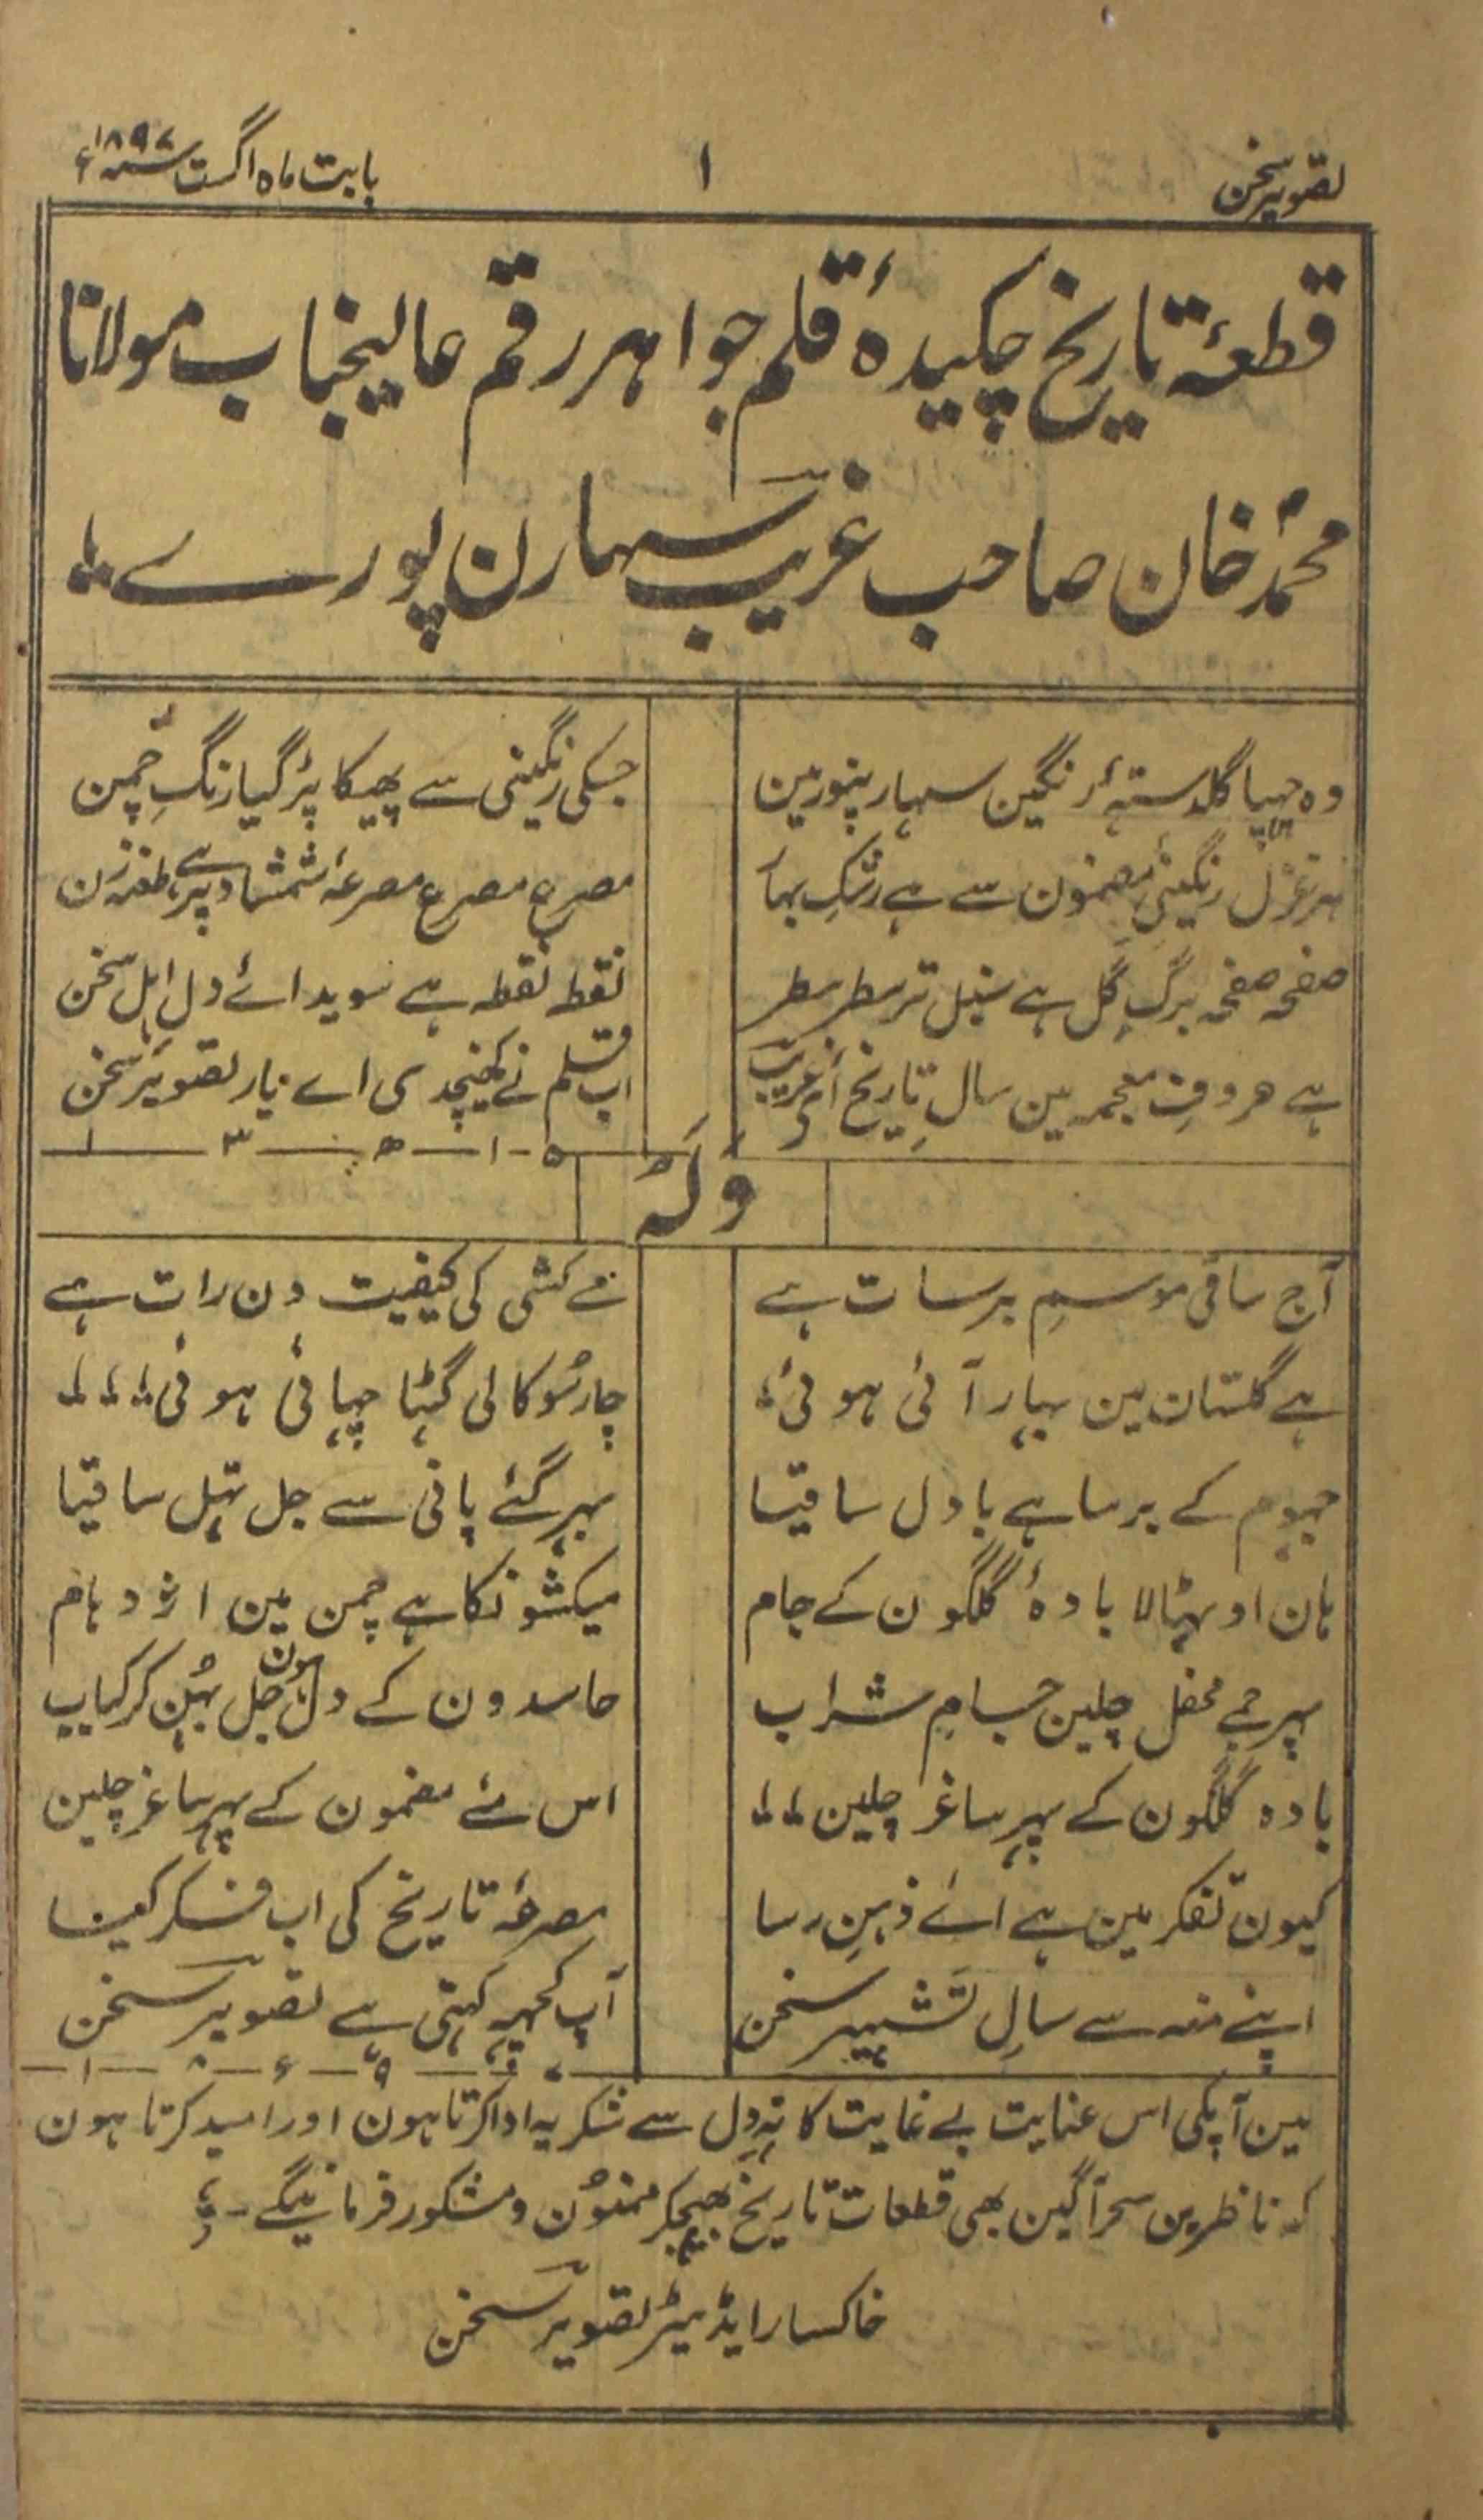 تصویر سخن ۱ بابت ماہ اگست سنہ ۱۸۹۷ء
قطعۂ تاریخ چکیدۂ قلم جواہر رقم عالیجناب مولانا
محمد خان صاحب غریب سہارن پورے
وہ چھپا گلدستۂ رنگین سہارنپور مین جسکی رنگینی سے پھیکا پڑ گیا رنگِ چمن
ہر غزل رنگینیِ مضمون سے ہے رشکِ بہار مصرع مصرع مصرعۂ شمشاد پر ہے طعنہ زن
صفحہ صفحہ برگِ گل ہے سنبل تر سطر سطر نقطہ نقطہ ہے سویدائے دلِ اہل سخن
ہے حروفِ معجمہ مین سالِ تاریخ اے غریب اب قلم نے کھینچدی اے یار تصویر سخن
۵ - ۱ - ھ - ۳ - ۱
ولہ
آج ساقی موسمِ برسات ہے مے کشی کی کیفیت دن رات ہے
ہے گلستان مین بہار آئی ہوئی چار سُو کالی گھٹا چھائی ہوئی
جھوم کے برسا ہے بادل ساقیا بھر گئے پانی سے جل تھل ساقیا
ہان اوٹھا لا بادۂ گلگون کے جام میکشونکا ہے چمن مین اژدہام
پھر جمے محفل چلین جامِ شراب حاسدون کے دل ہون جل بُھن کر کباب
بادہ گلگون کے پھر ساغر چلین اس مئے مضمون کے پھر ساغر چلین
کیون تفکر مین ہے اے ذہنِ رسا مصرعۂ تاریخ کی اب فکر کیا
اپنے منہ سے سالِ تشہیر سخن آپ کھچہ کہتی ہے تصویر سخن
۷ - ۹ - ء - ۸ - ۱
مین آپکی اس عنایت بے غایت کا تہِ دل سے شکریہ ادا کرتا ہون اور امید کرتا ہون
کہ ناظرین سحر آگین بھی قطعات تاریخ بھیجکر ممنوُن و مشکور فرمائینگے -
خاکسار ایڈیٹر تصویر سخن